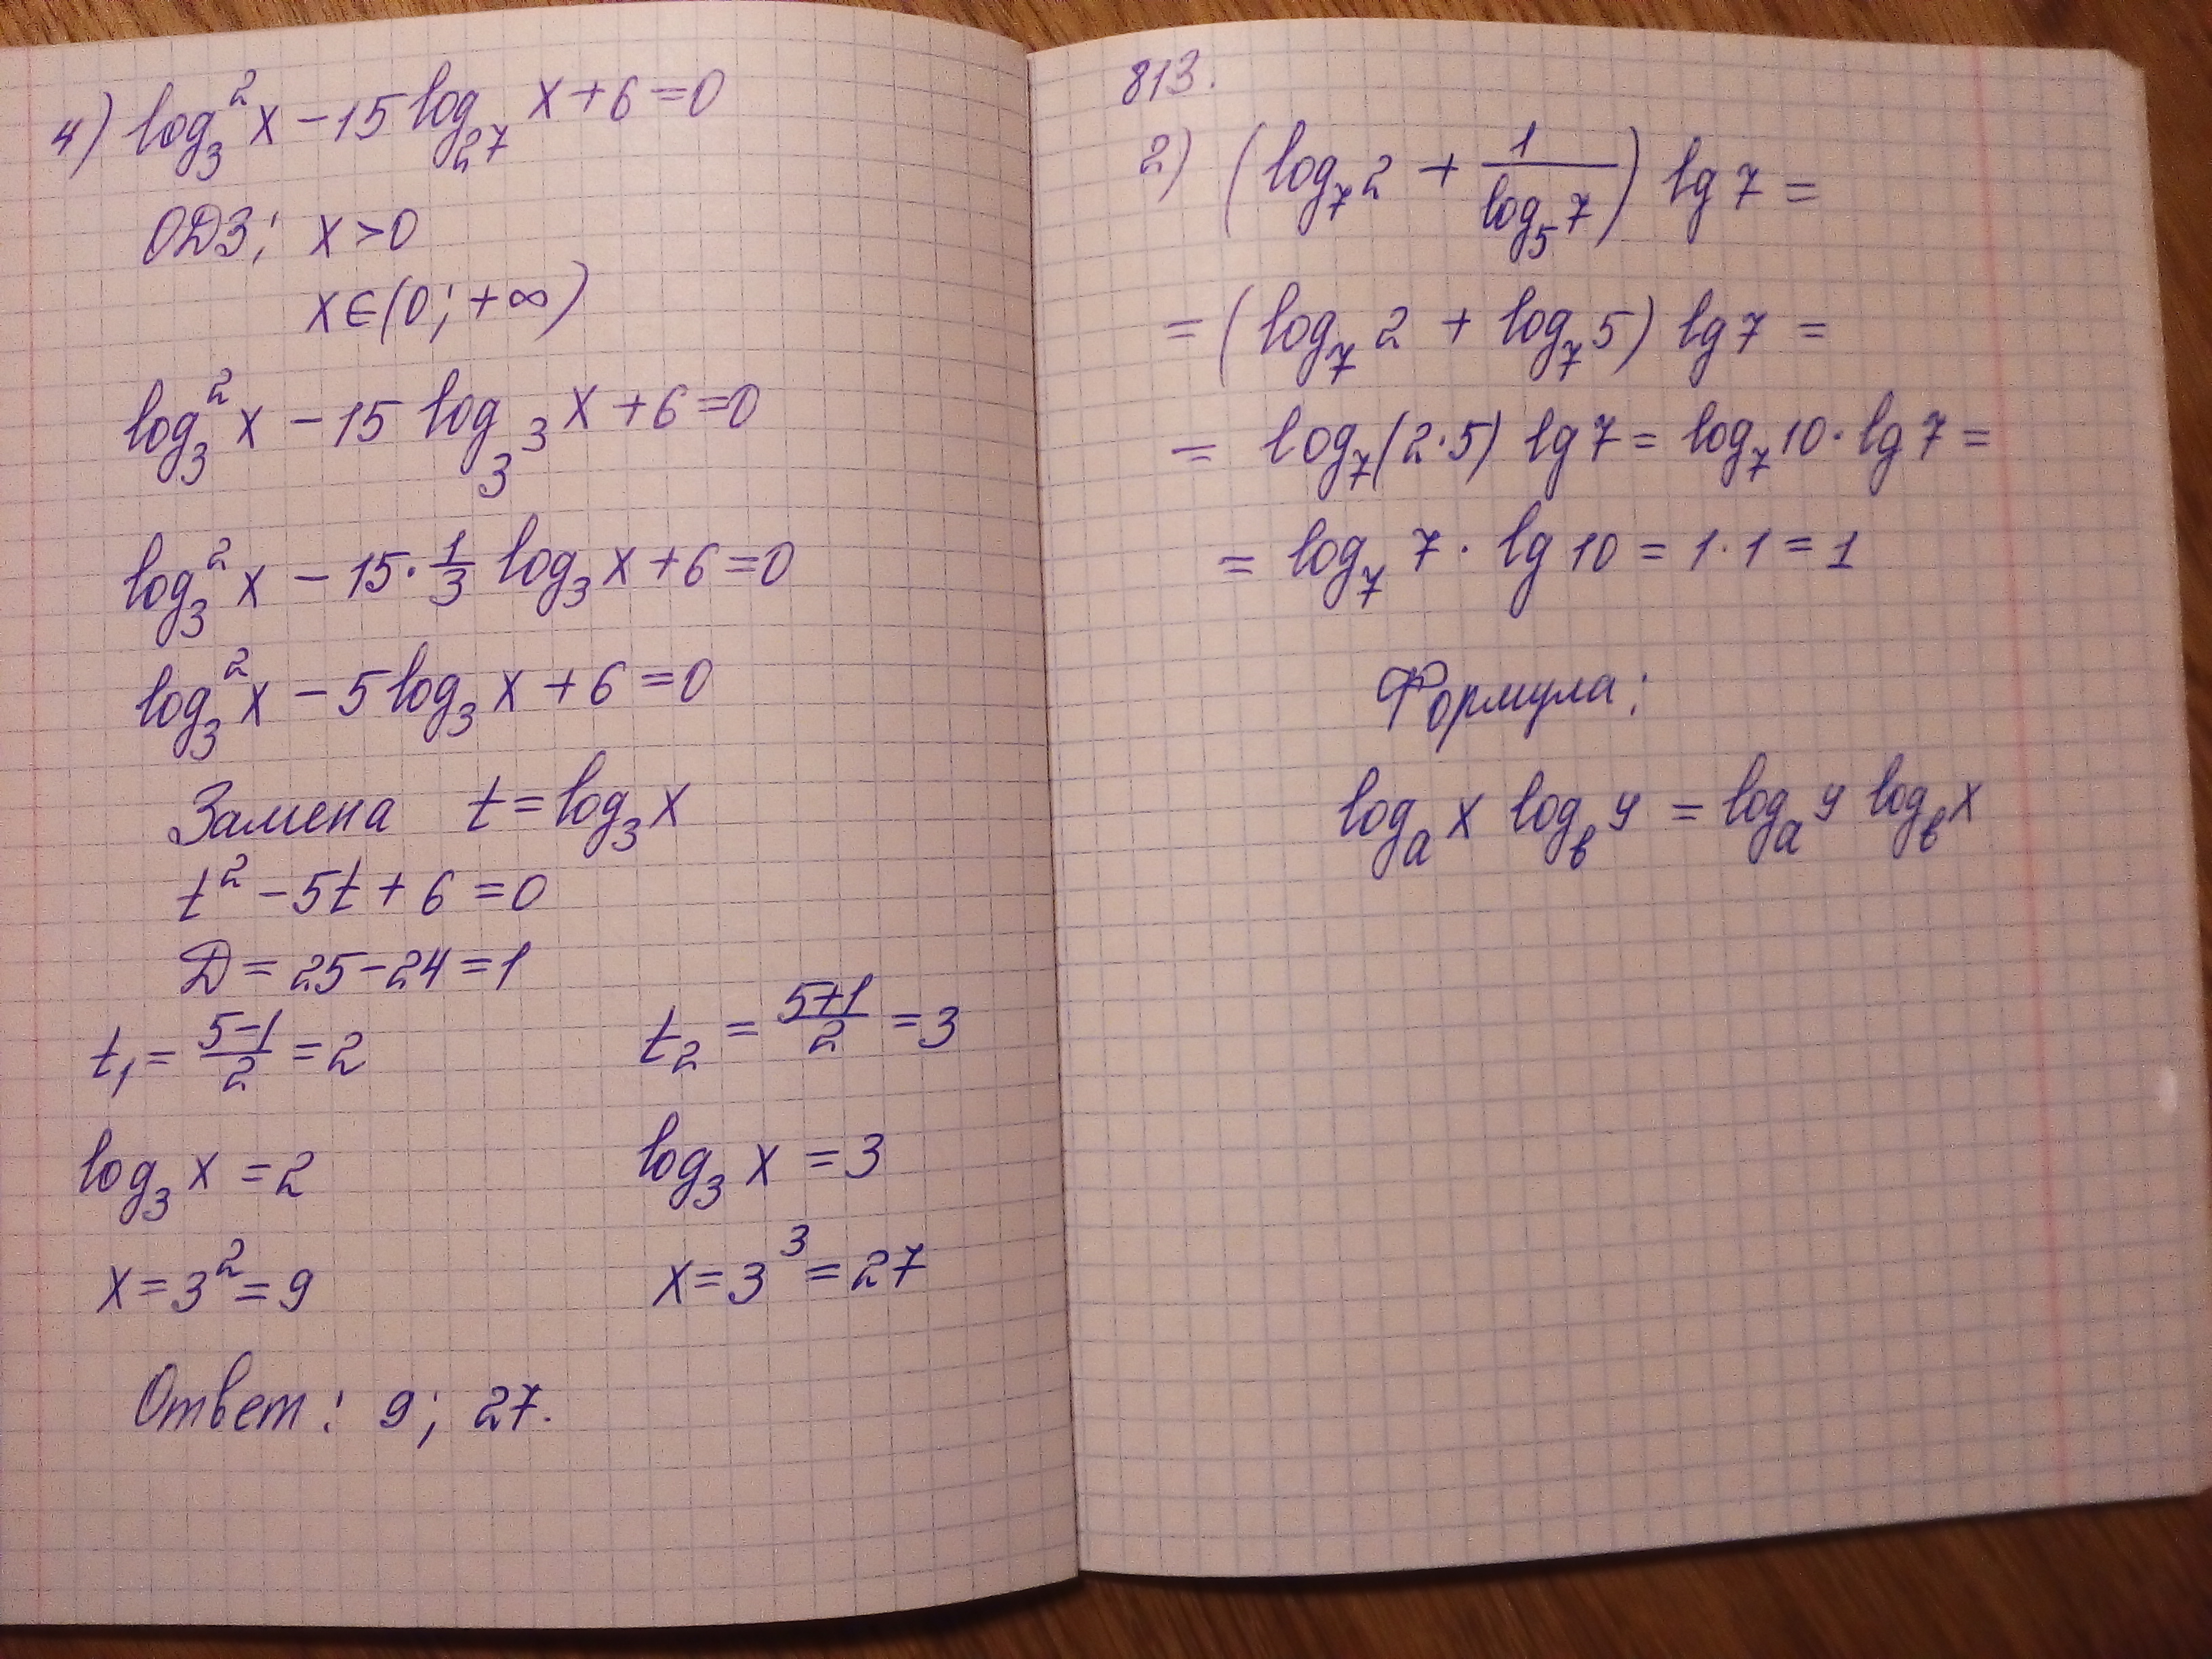 4) log₃² x − 15 log₂₇ x + 6 = 0
ОДЗ: x > 0
x ∈ (0; +∞)
log₃² x − 15 log_{3³} x + 6 = 0
log₃² x − 15 · 1/3 log₃ x + 6 = 0
log₃² x − 5 log₃ x + 6 = 0
Замена t = log₃ x
t² − 5t + 6 = 0
Д = 25 − 24 = 1
t₁ = (5−1)/2 = 2 t₂ = (5+1)/2 = 3
log₃ x = 2 log₃ x = 3
x = 3² = 9 x = 3³ = 27
Ответ: 9; 27.
813.
2) (log₇ 2 + 1/log₅ 7) lg 7 =
= (log₇ 2 + log₇ 5) lg 7 =
= log₇ (2·5) lg 7 = log₇ 10 · lg 7 =
= log₇ 7 · lg 10 = 1 · 1 = 1
Формула:
logₐ x log_в y = logₐ y log_в x